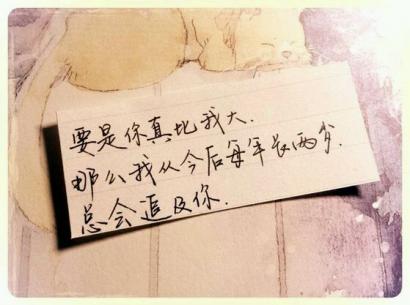 要是你真比我大.
那么我从今后每年长两岁.
总会追及你.